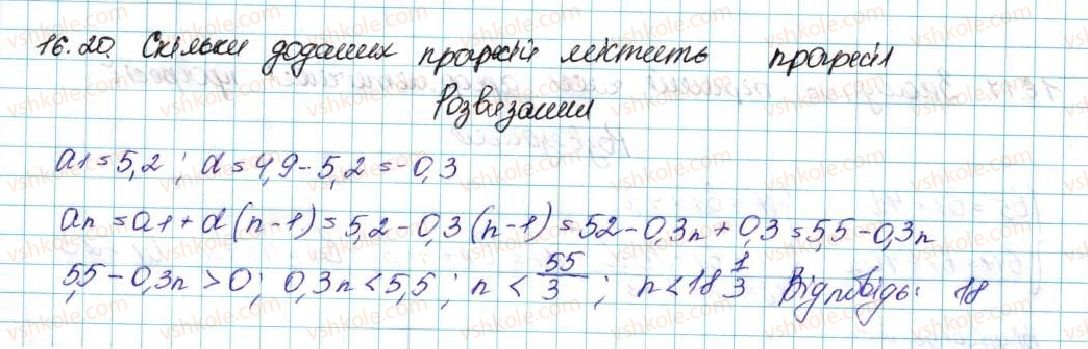 16.20. Скільки доданих прогресій містить прогресія
Розв'язання
a1 = 5,2 ; d = 4,9 - 5,2 = -0,3
an = a1 + d (n-1) = 5,2 - 0,3 (n-1) = 52 - 0,3n + 0,3 = 5,5 - 0,3n
5,5 - 0,3n > 0 ; 0,3n < 5,5 ; n < 55/3 ; n < 18 1/3 Відповідь: 18